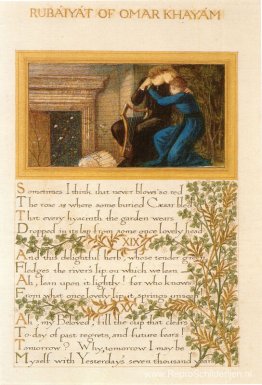 RUBÁIYÁT OF OMAR KHAYÁM
Sometimes I think that never blows so red
The rose as where some buried Cæsar bled
That every hyacinth the garden wears
Dropped in its lap from some once lovely head
XIX
And this delightful herb, whose tender green
Fledges the river's lip on which we lean
Ah, lean upon it lightly! for who knows
From what once lovely lip it springs unseen
Ah, my Beloved, fill the cup that clears
To-day of past regrets, and future fears!
Tomorrow? Why, tomorrow I may be
Myself with Yesterday's seven thousand years
www.ReproSchilderijen.nl